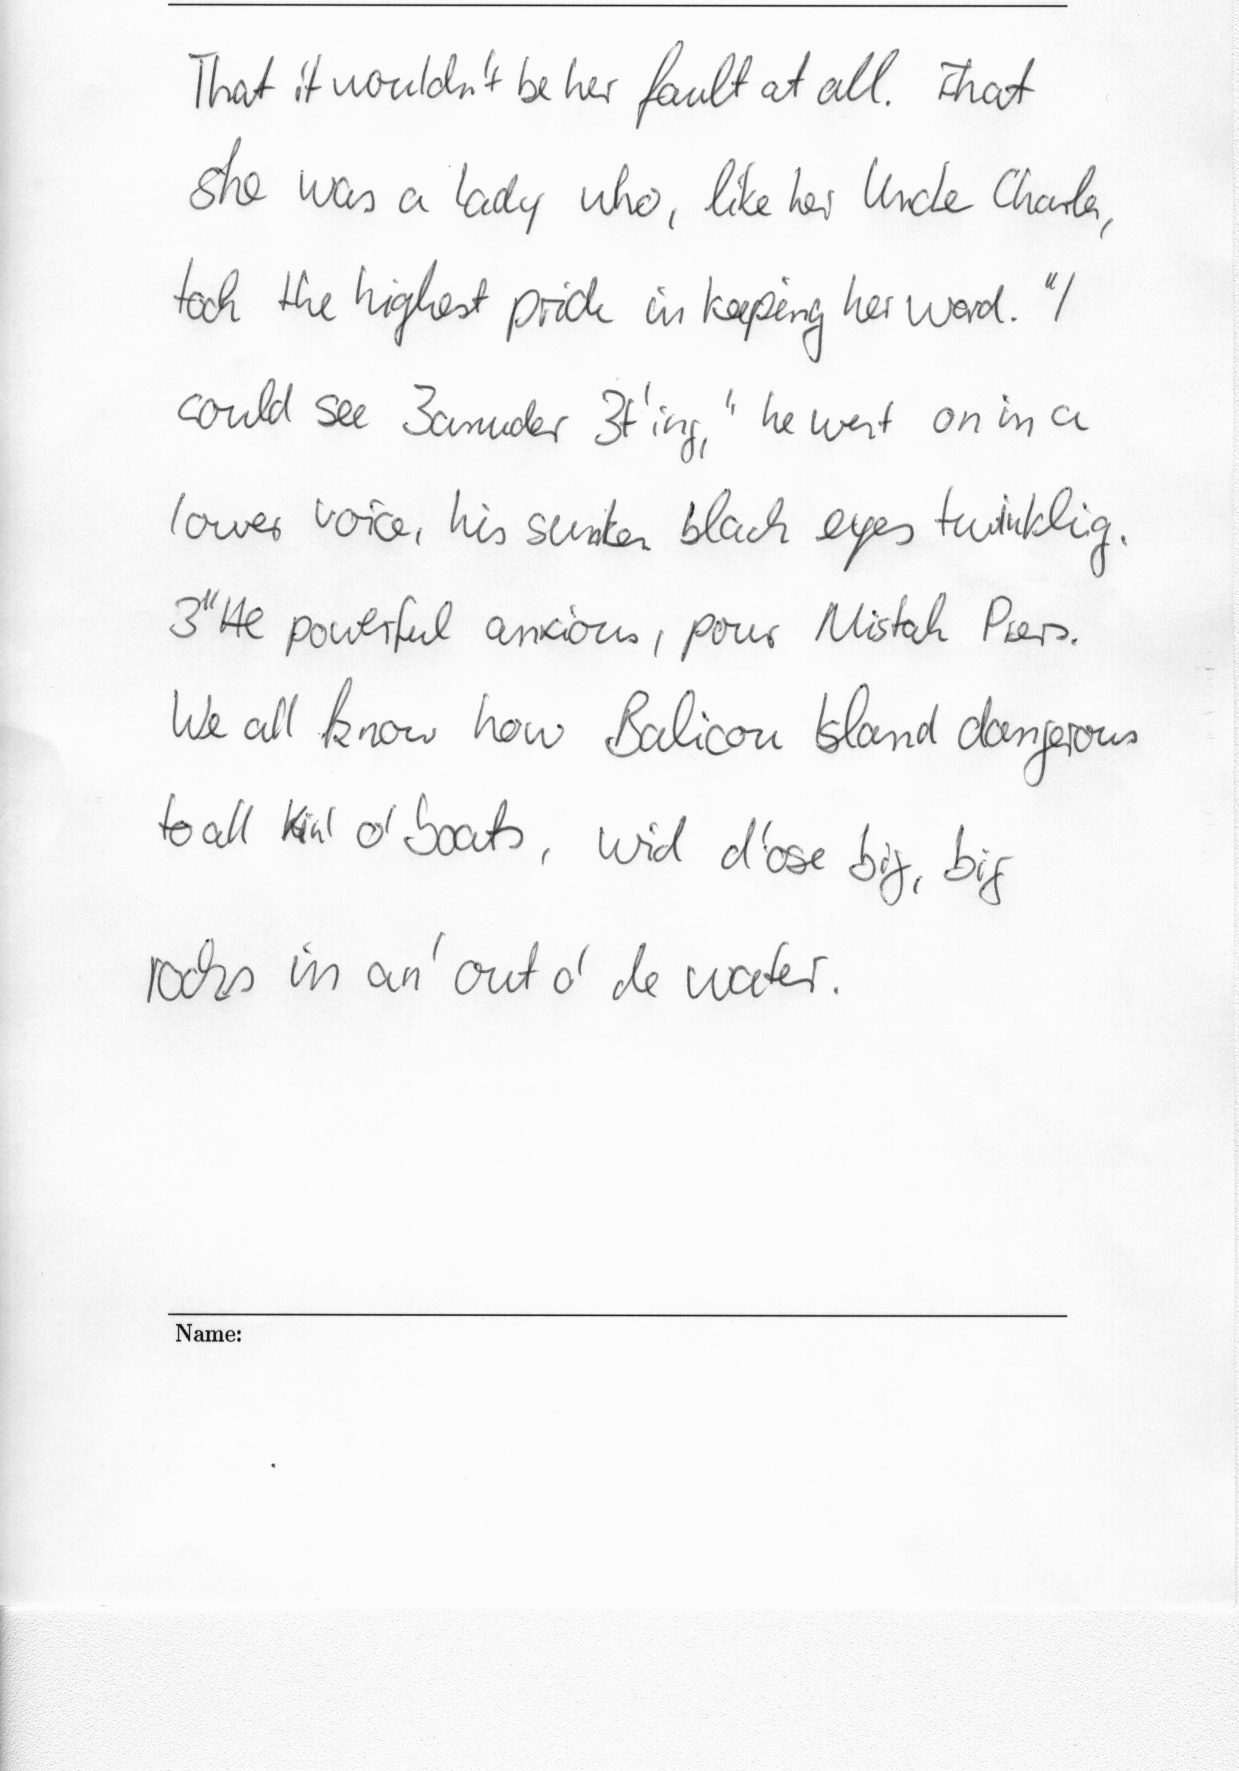 That it wouldn't be her fault at all. That
she was a lady who, like her Uncle Charles,
took the highest pride in keeping her word. "I
could see 3anuder 3t'ing," he went on in a
lower voice, his sunken black eyes twinklig.
3"He powerful anxious, pour Mistah Piers.
We all know how Balicou Island dangerous
to all kin' o' boats, wid d'ose big, big
rocks in an' out o' de water.
Name: